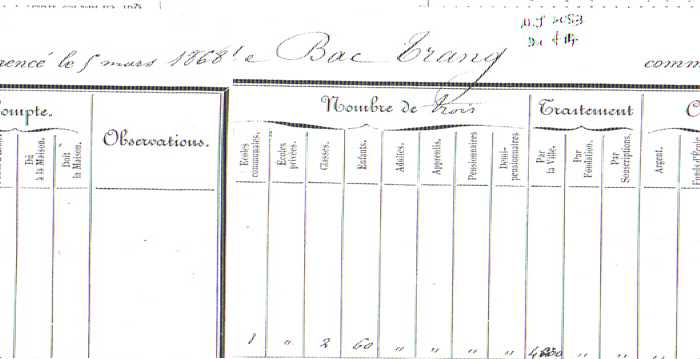 mencé le 5 mars 1868 à Bac Trang comm
ompte.
Observations.
Nombre de trois
Traitement
C
Dû à la Maison.
Doit la Maison.
Ecoles communales.
Ecoles privées.
Classes.
Enfants.
Adultes.
Apprentis.
Pensionnaires
Demi-pensionnaires
Par la Ville.
Par Fondation.
Par Souscriptions.
Argent.
Fonds d'Ecole
1 " 2 60 " " " " " " "